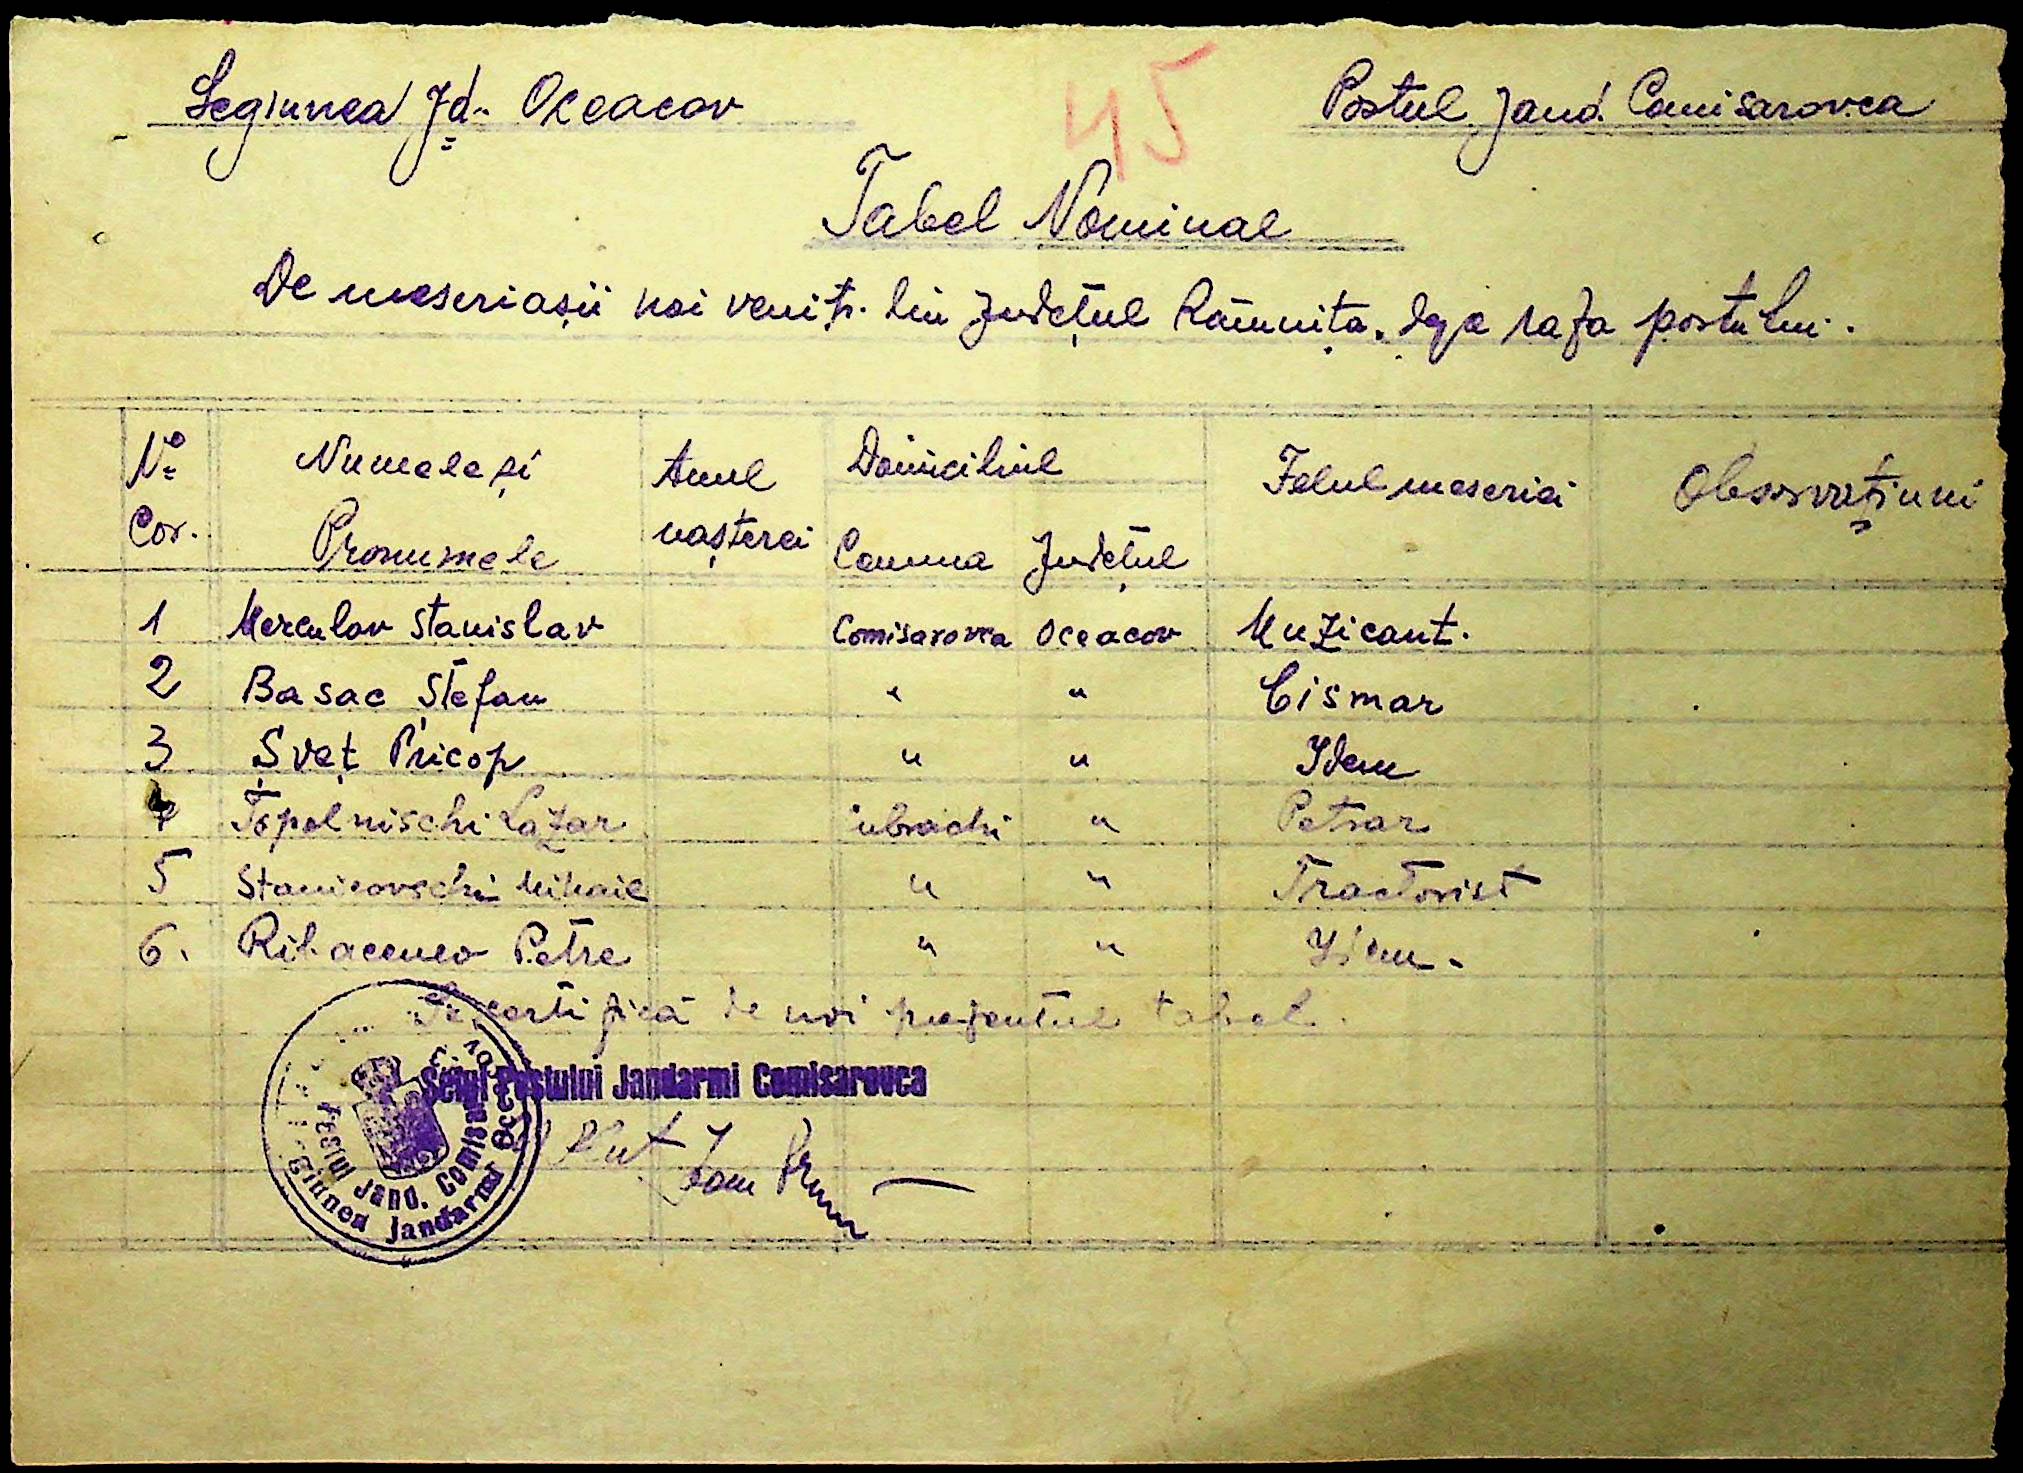 Legiunea Jd. Oceacov
45
Postul Jand. Comisarovca
Tabel Nominal
De meseriașii noi veniți din județul Râmnița, de pe raza postului.
No Cor.
Numele și Pronumele
Anul nașterei
Domiciliul
Comuna
Județul
Felul meseriei
Observațiuni
1 Merculov Stanislav Comisarovca Oceacov Muzicant.
2 Basac Ștefan " " Cismar
3 Șveț Pricop " " Idem
4 Topolnischi Lazar " Petrar
5 Stanicovschi Mihail " " Tractorist
6. Ribacenco Petre " " Idem.
Se certifică de noi prezentul tabel.
Șeful Postului Jandarmi Comisarovca
Postul Jand. Comisa
giunea Jandarmi Oceacov